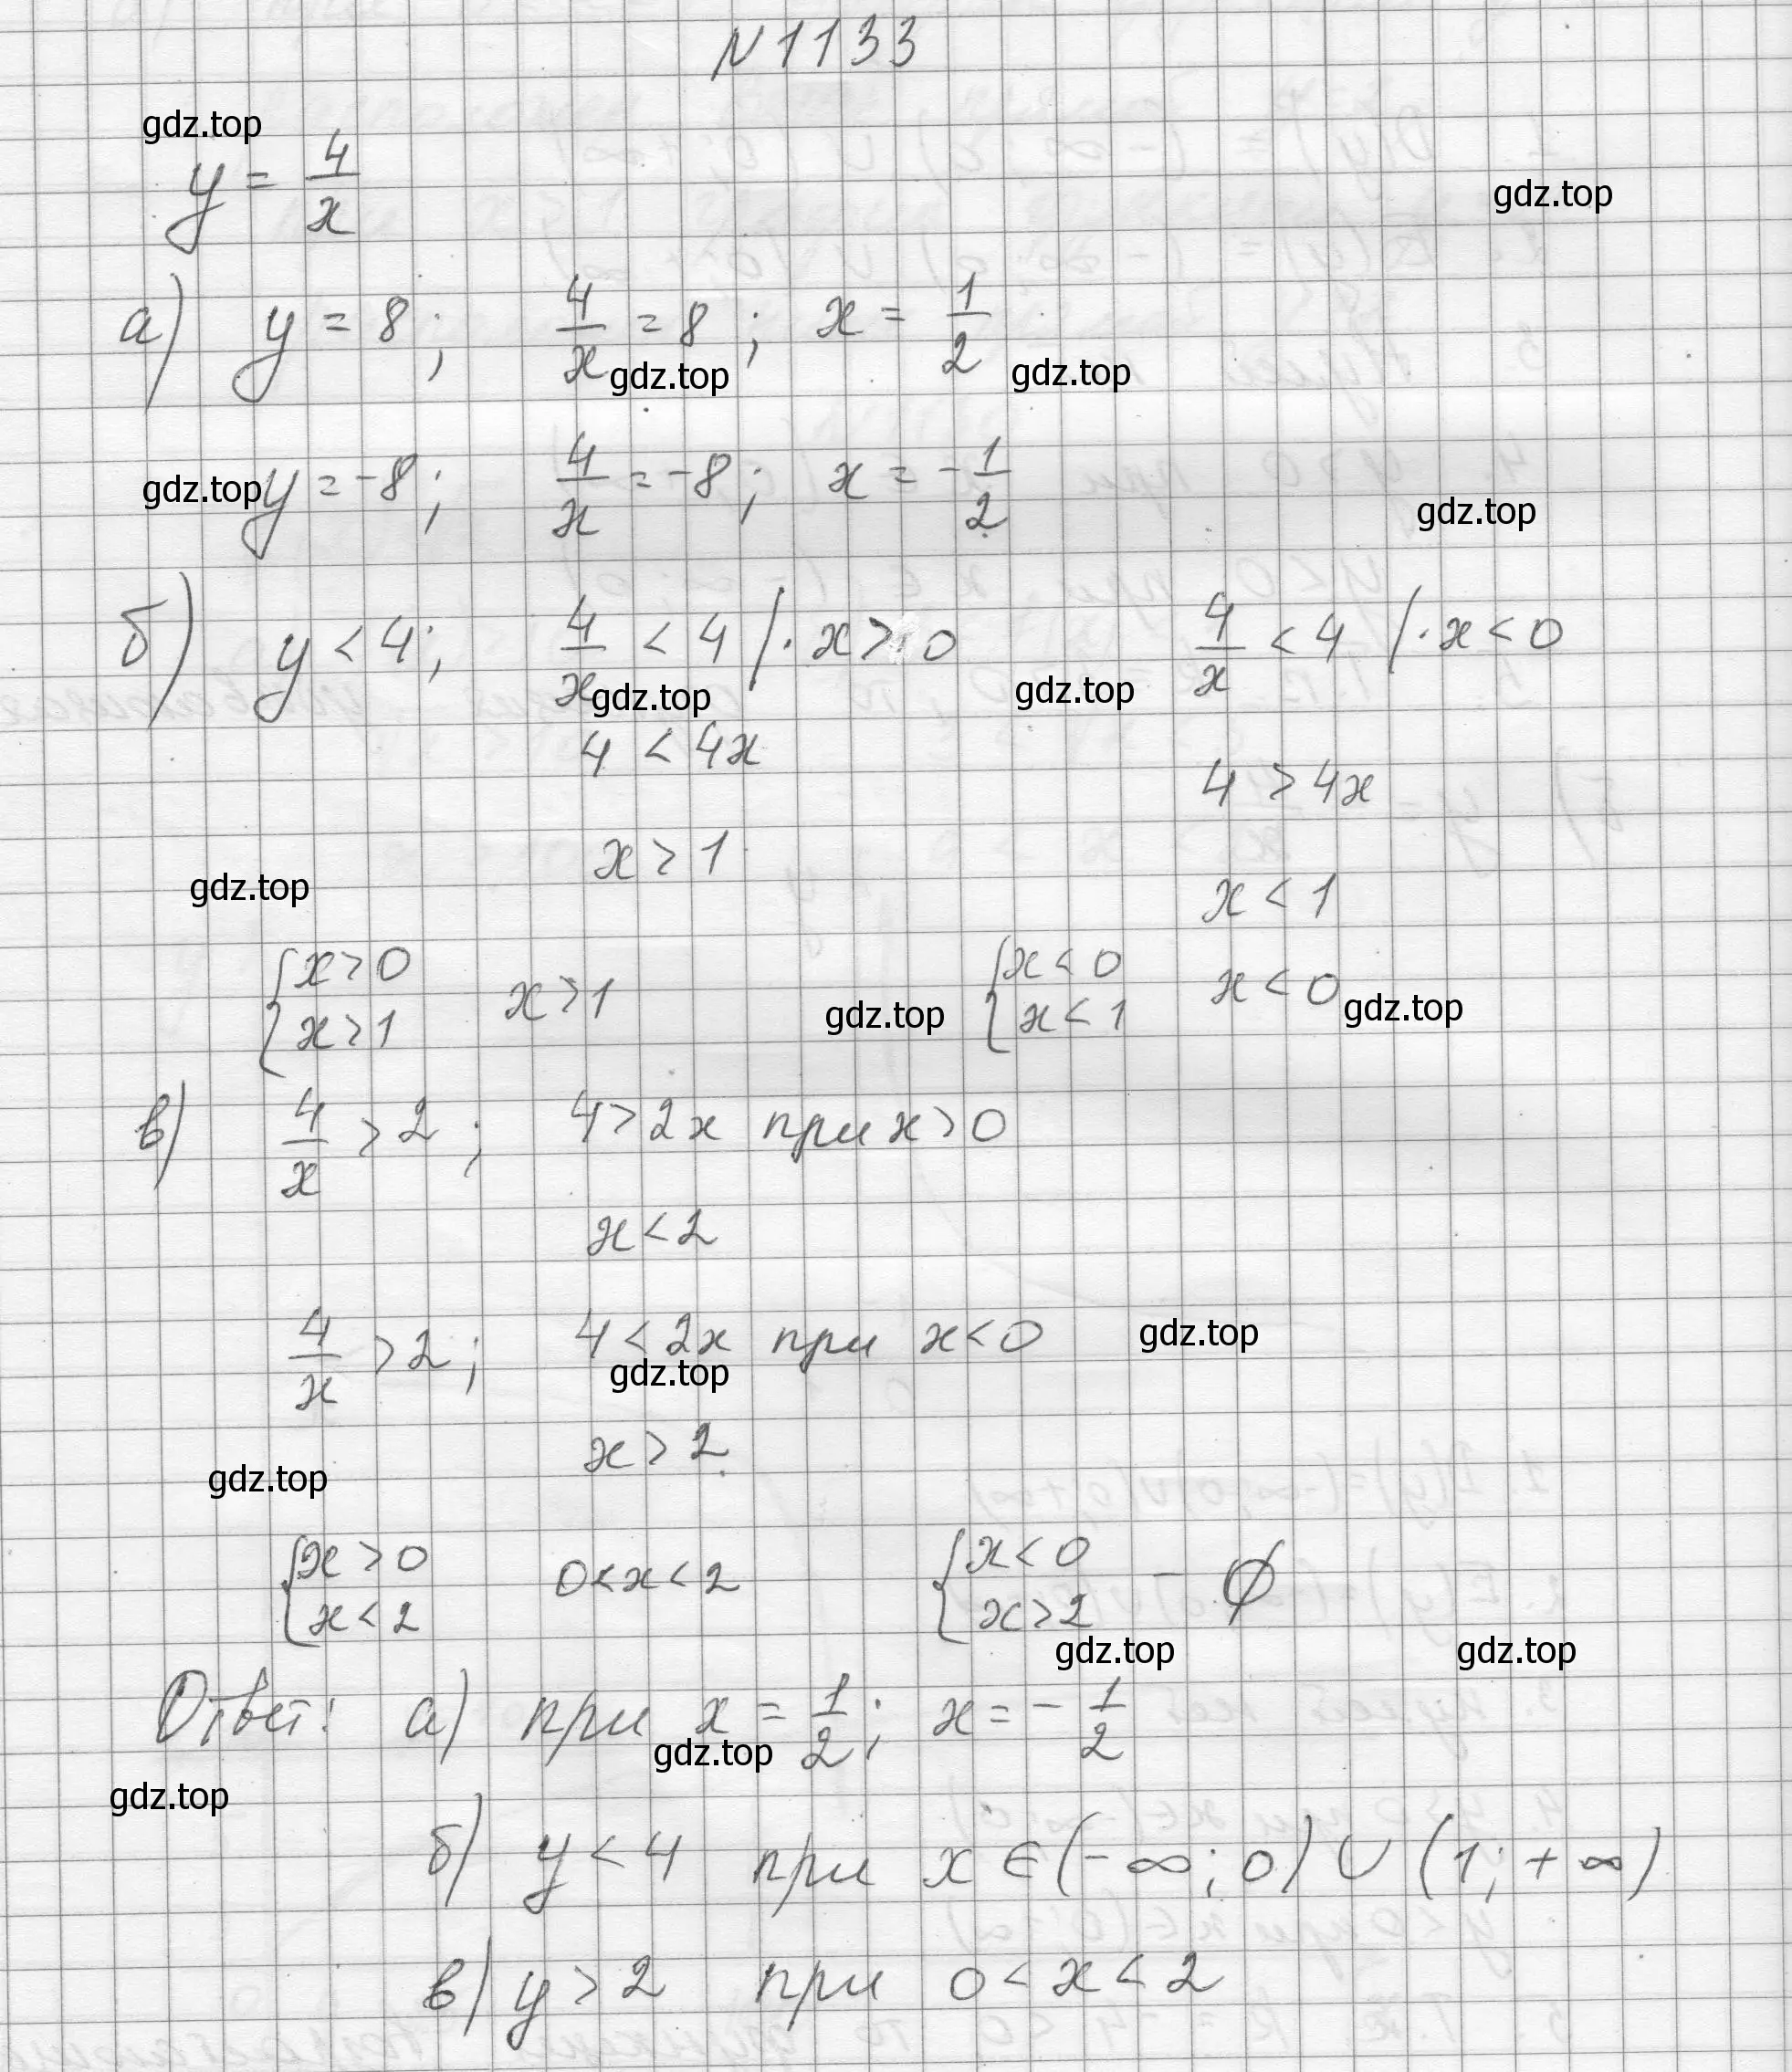 N1133
gdz.top
y = 4/x
gdz.top
а) y = 8; 4/x = 8; x = 1/2
gdz.top gdz.top
gdz.top y = -8; 4/x = -8; x = -1/2
gdz.top
б) y < 4; 4/x < 4 /· x > 0 4/x < 4 /· x < 0
gdz.top gdz.top
4 < 4x
4 > 4x
x > 1
gdz.top
x < 1
{x > 0 {x < 0
{x > 1 x > 1 gdz.top {x < 1 x < 0 gdz.top
в) 4/x > 2; 4 > 2x при x > 0
x < 2
4/x > 2; 4 < 2x при x < 0 gdz.top
gdz.top
x > 2
gdz.top
{x > 0 0 < x < 2 {x < 0 - ∅
{x < 2 {x > 2
gdz.top gdz.top
Ответ: а) при x = 1/2; x = -1/2
gdz.top
gdz.top
б) y < 4 при x ∈ (-∞; 0) ∪ (1; +∞)
в) y > 2 при 0 < x < 2